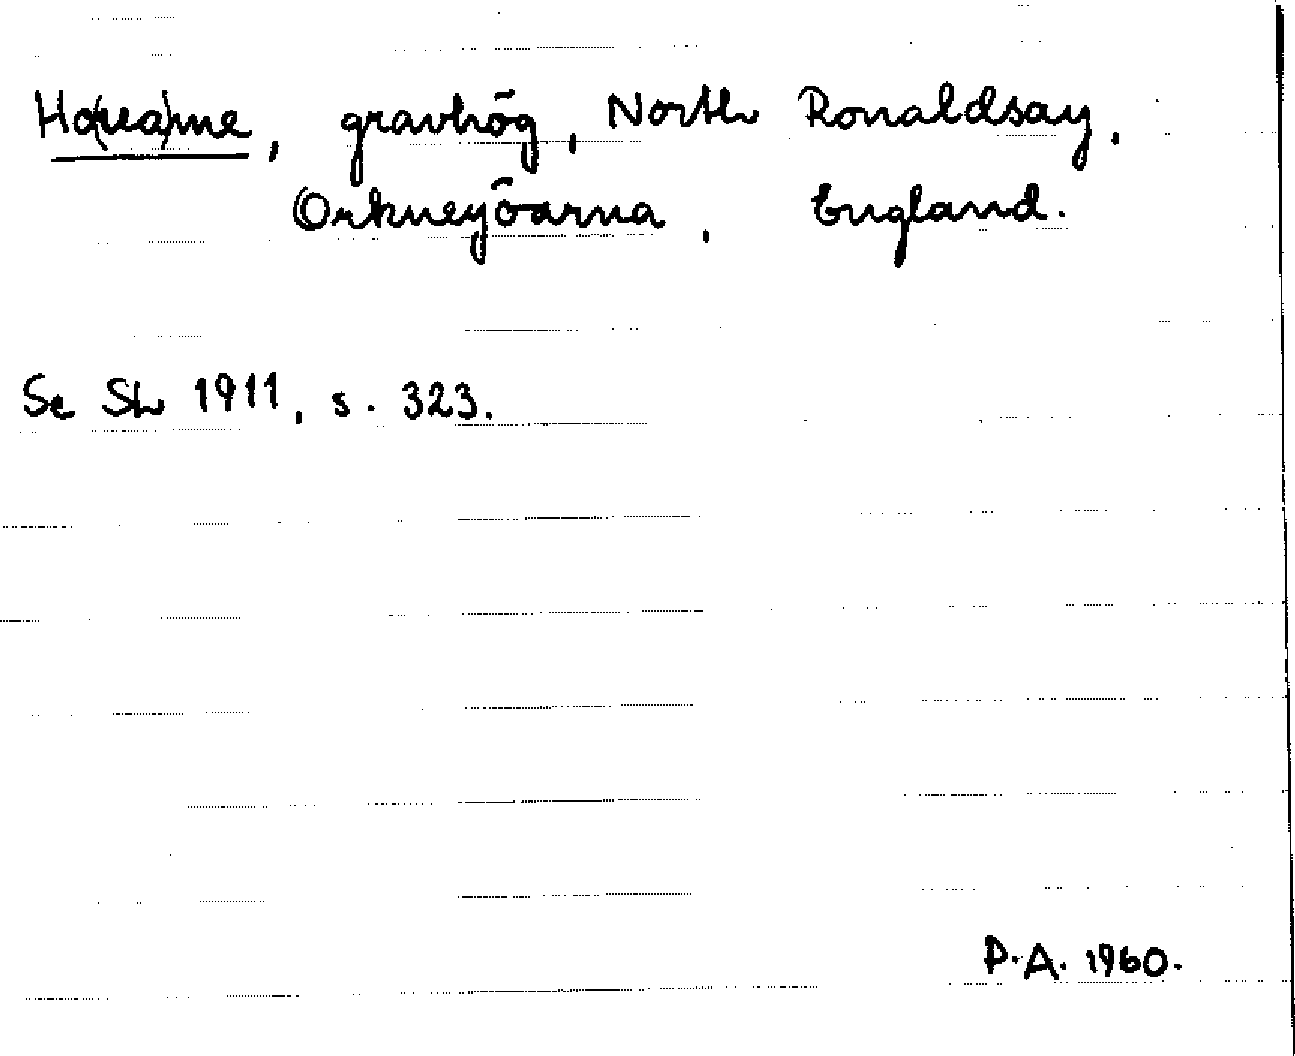 gravhög, North Ronaldsay,
Orkneyöarna, England.
Se Sh 1911, s. 323.
P.A. 1960.